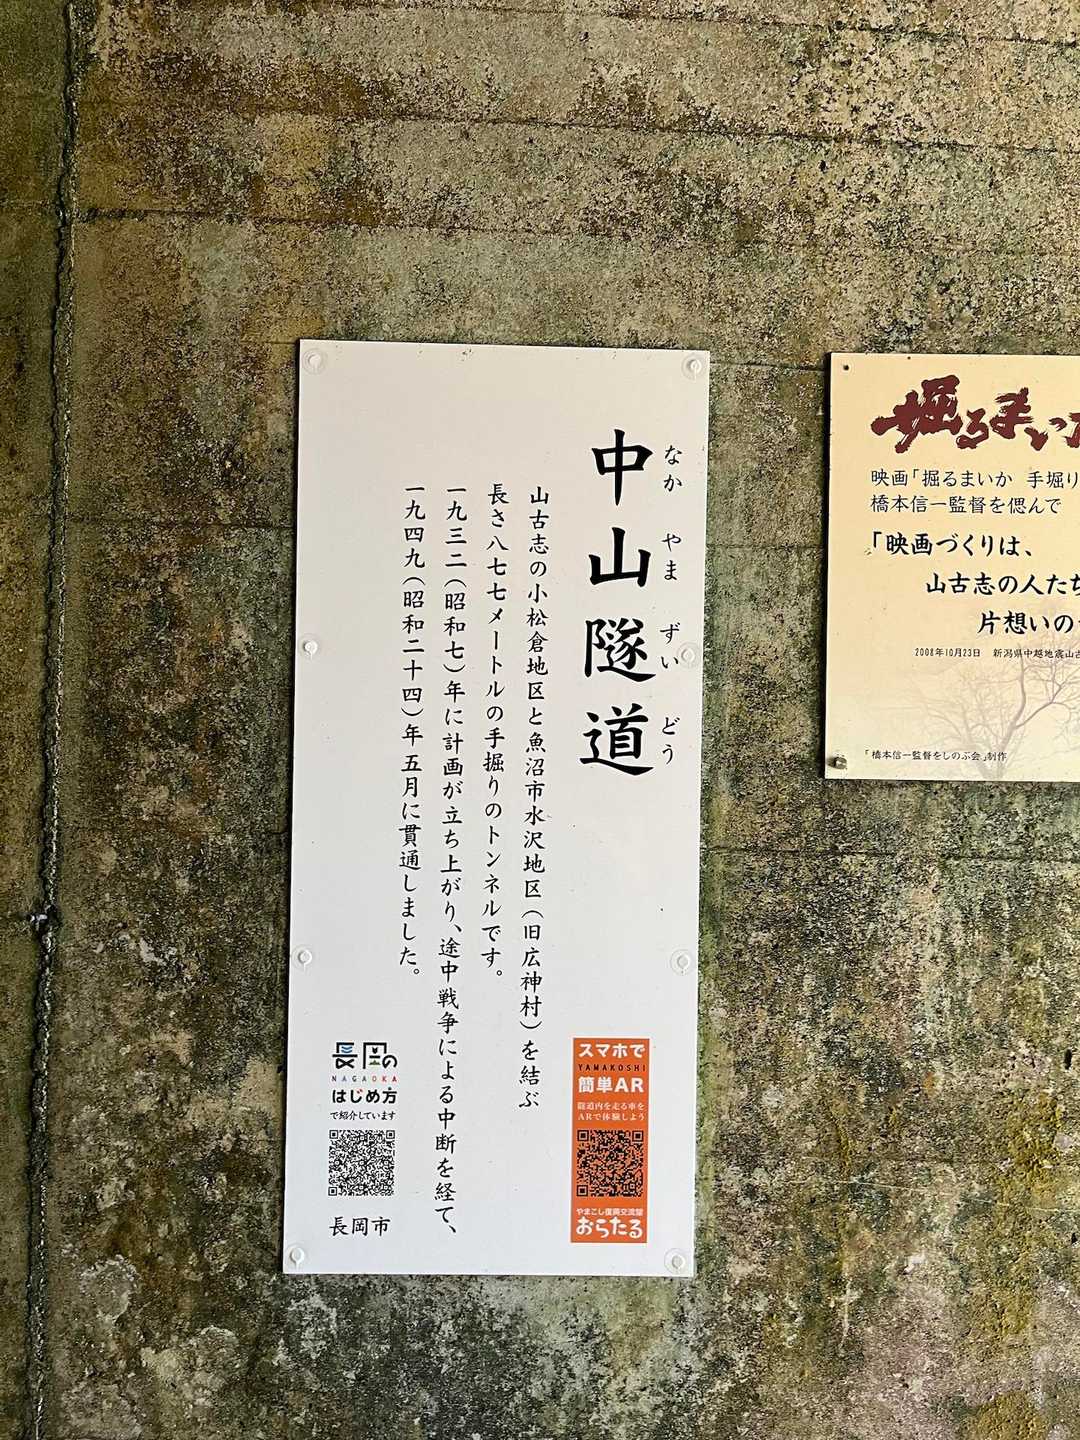 中山隧道
なか やま ずい どう
山古志の小松倉地区と魚沼市水沢地区(旧広神村)を結ぶ
長さ八七七メートルの手掘りのトンネルです。
一九三二(昭和七)年に計画が立ち上がり、途中戦争による中断を経て、
一九四九(昭和二十四)年五月に貫通しました。
スマホで
YAMAKOSHI
簡単AR
隧道内を走る車を
ARで体験しよう
やまこし復興交流館
おらたる
長岡の
NAGAOKA
はじめ方
で紹介しています
長岡市
掘るまい
映画「掘るまいか 手堀り
橋本信一監督を偲んで
「映画づくりは、
山古志の人たち
片想いの
2008年10月23日 新潟県中越地震山古
「橋本信一監督をしのぶ会」制作